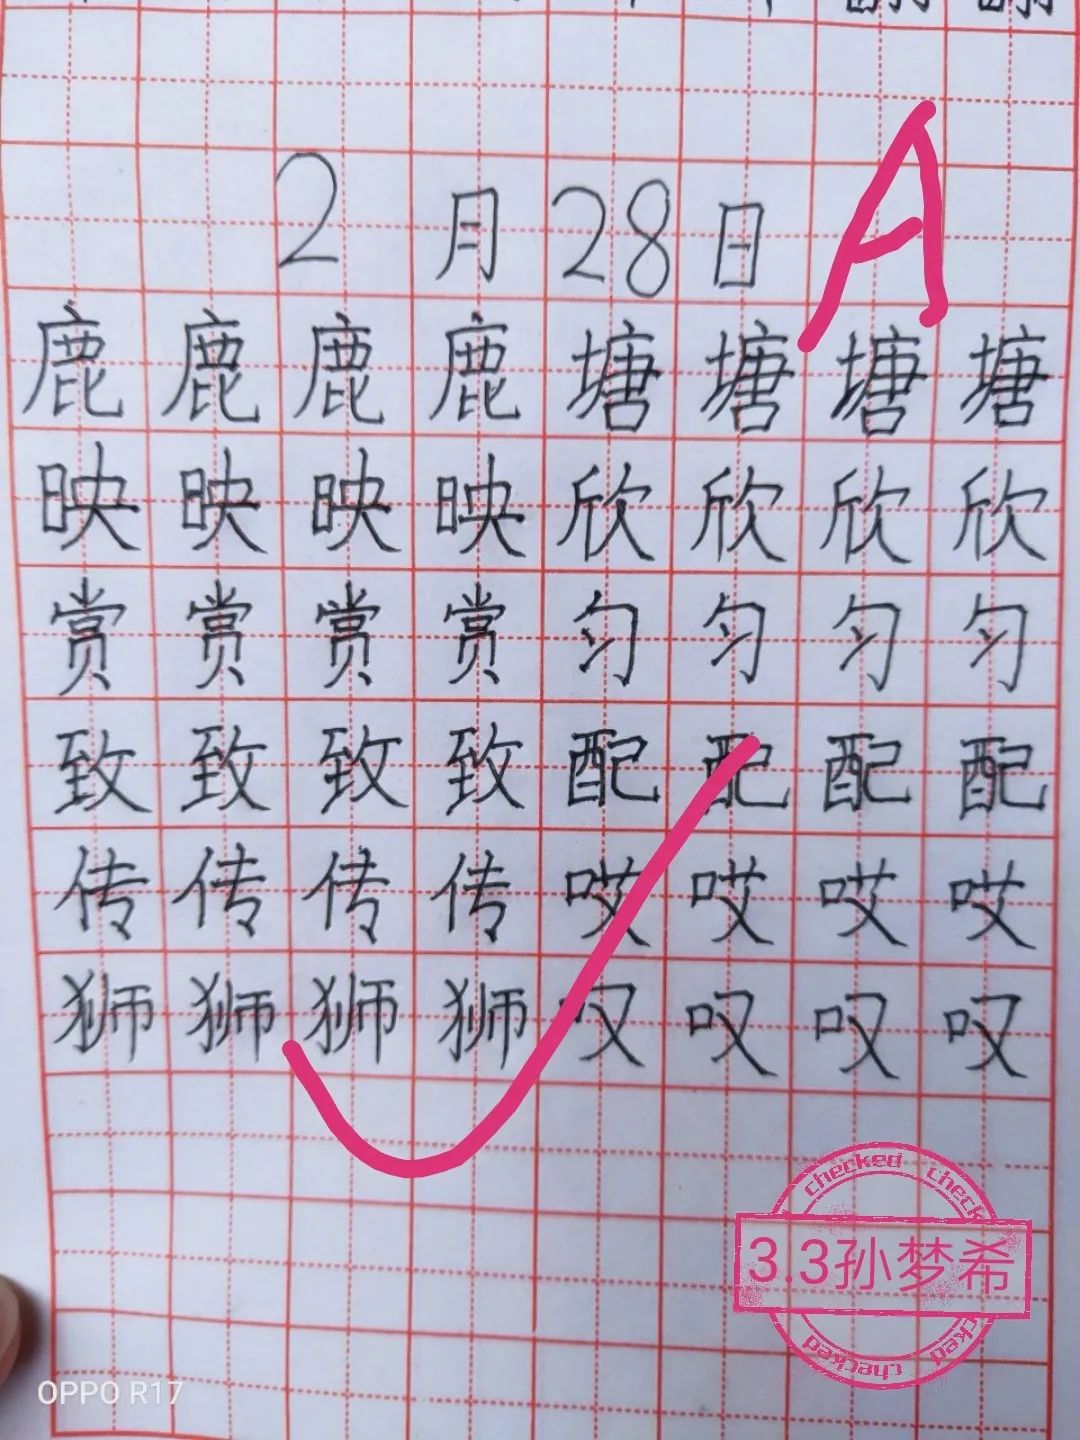 2月28日 A
鹿鹿鹿鹿塘塘塘塘
映映映映欣欣欣欣
赏赏赏赏匀匀匀匀
致致致致配配配配
传传传传哎哎哎哎
狮狮狮狮叹叹叹叹
checked check
3.3孙梦希
checked cked
OPPO R17